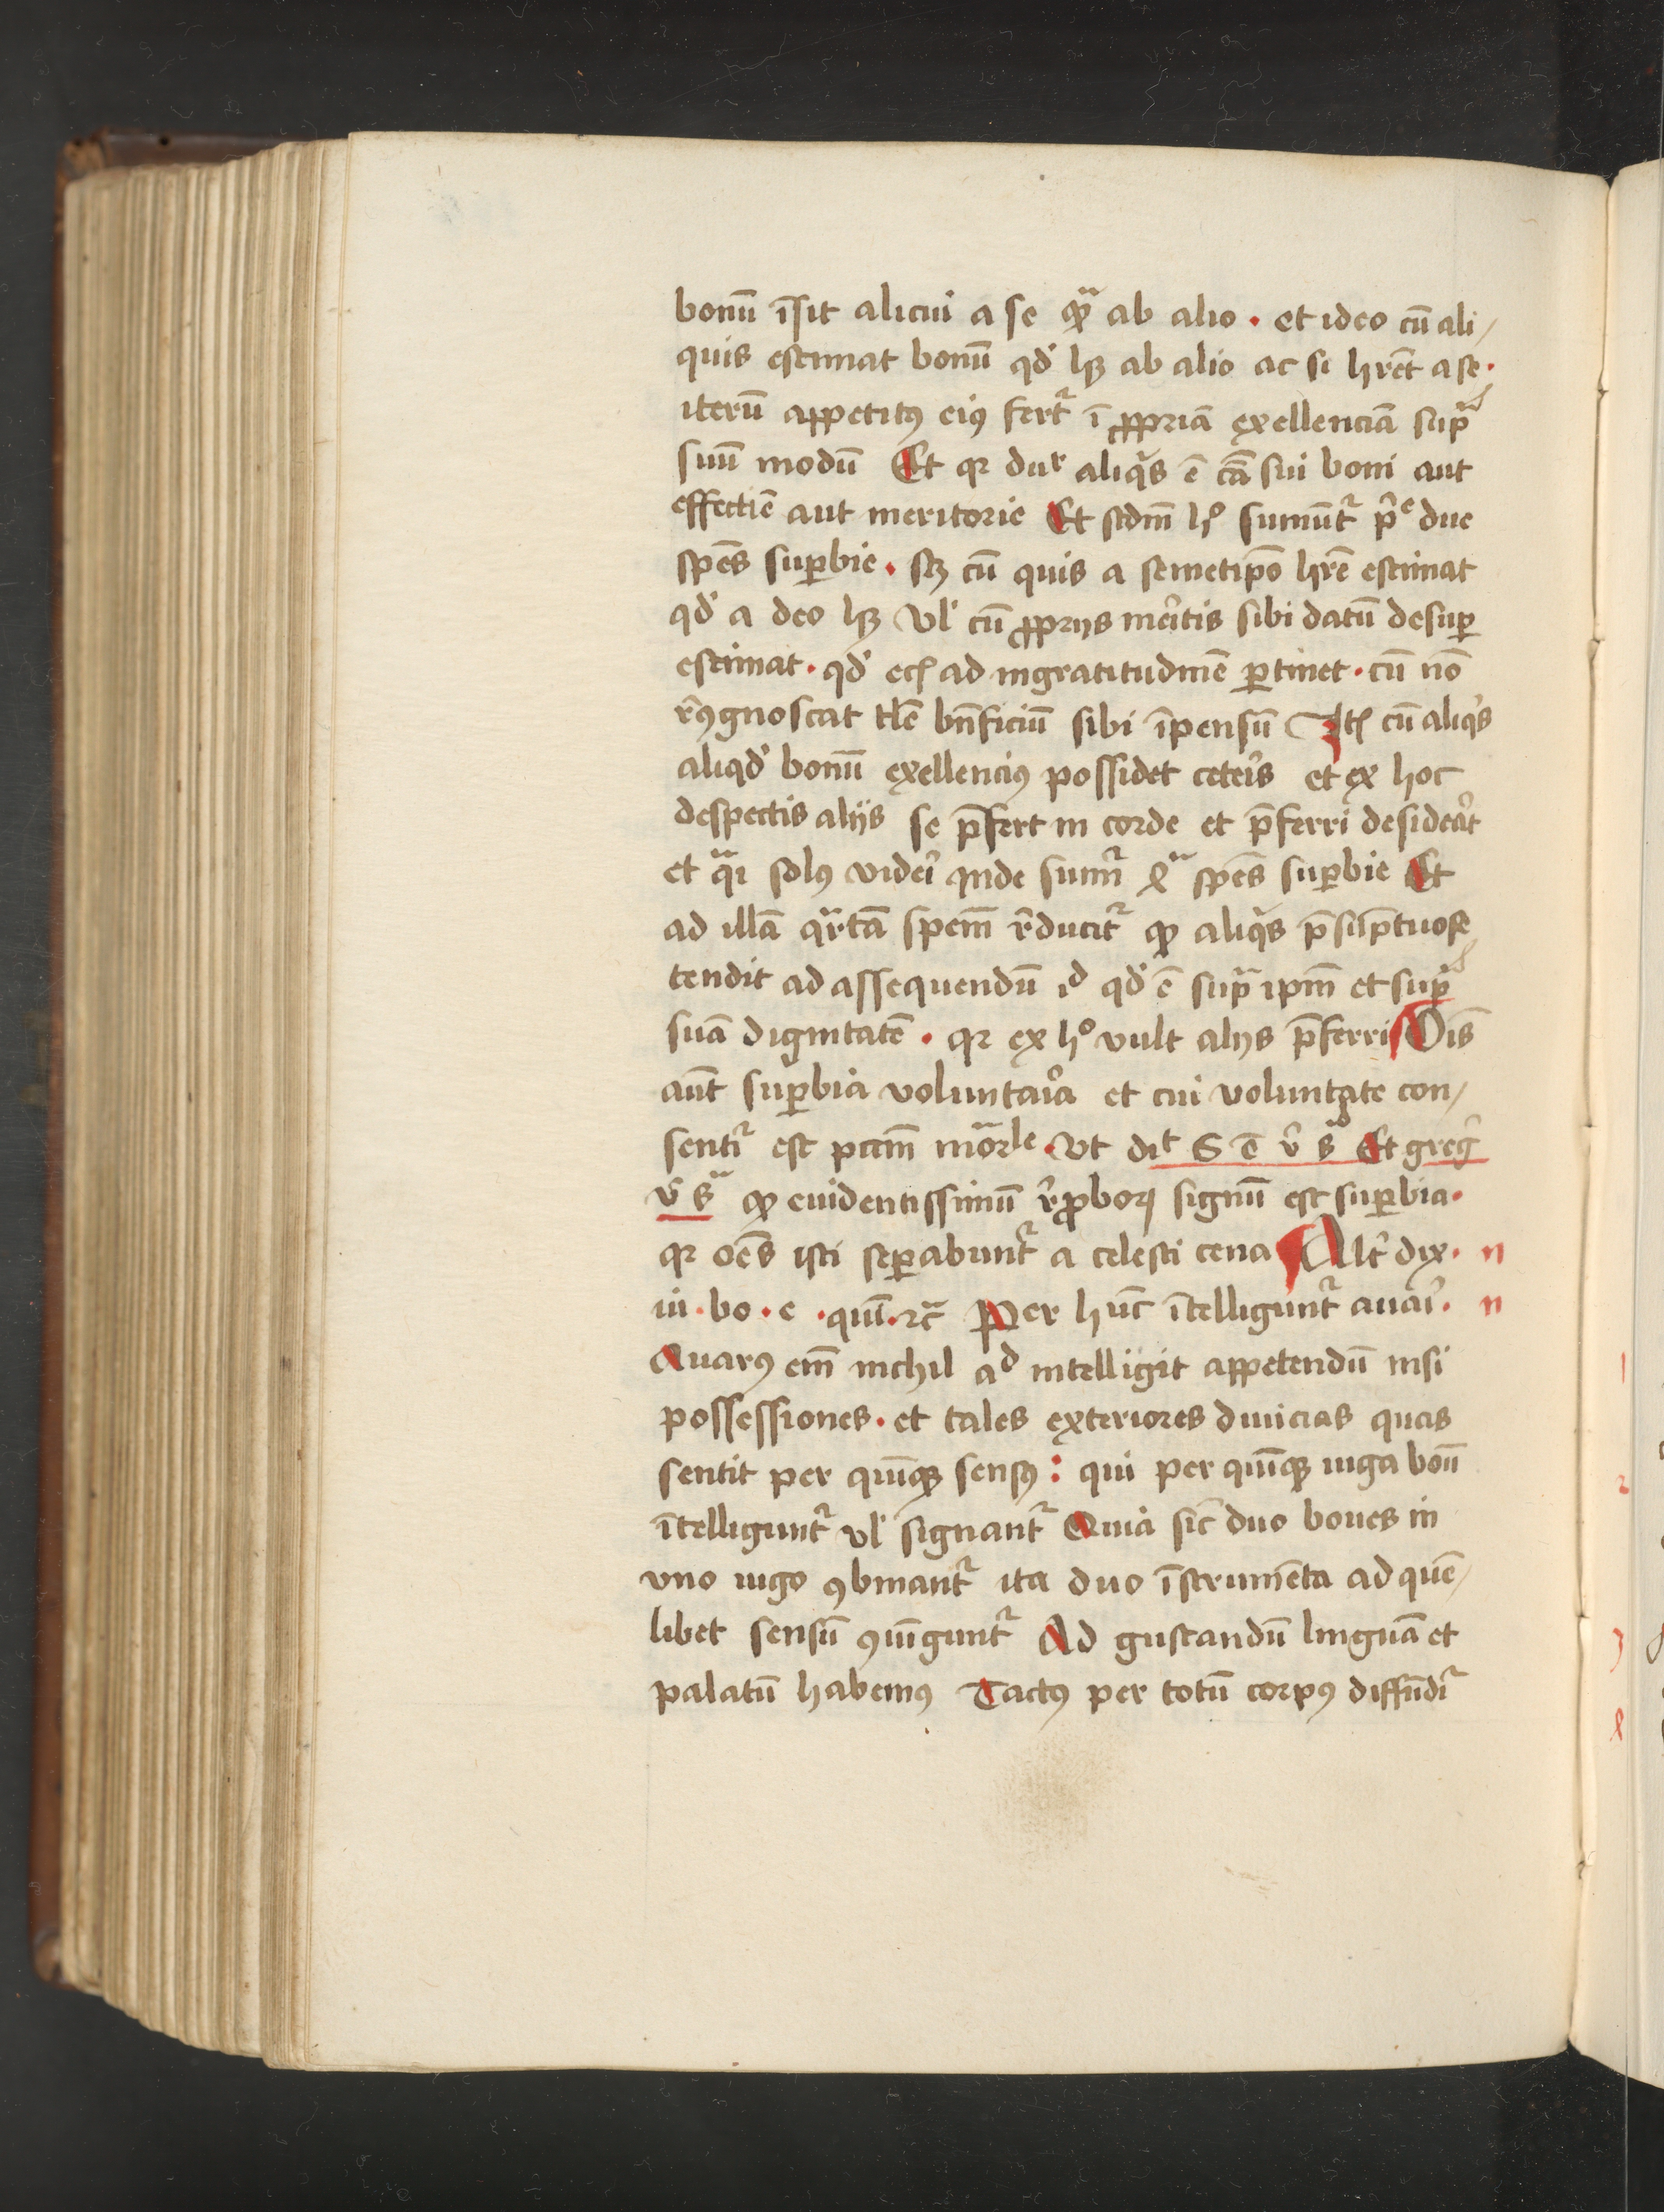 bonū īsit alicui a se qͣ ab alio · et ideo cū ali/
quis estimat bonū qd' hꝫ ab alio ac si hr̄et a se ·
iterū appetitꝰ eiꝰ fertᷣ ī ꝓpriā exellenciā sup̄ͣ
suū modū Et qr dur aliqͥs ē cā sui boni aut
effectiē aut meritorie Et scdm̄ hͦ sumūtᷣ p̄ͤ due
sp̄es suꝑbie · sꝫ cū quis a semetip̄o hr̄e estimat
qd' a deo hꝫ vl' cū ꝓprijs meͥtis sibi datū desuꝑ
estimat · qd' ecꝭ ad ingratitudinē ꝑtinet · cū nō
r̄ꝯgnoscat tl̄e bn̄ficiū sibi īpensū Itꝭ cū aliqͥs
aliqd' bonū exellenciꝰ possidet ceteͥs et ex hoc
despectis alijs se p̄fert in corde et p̄ferri desideat᷑
et qͣi solꝰ videi᷑ inde sumi᷑ 4ͣ sp̄es suꝑbie Et
ad illā qͣrtā spem̄ r̄ducitᷣ ꝙ aliqͥs p̄sūptuose
tendit ad assequendū id qd' ē supͣ ipm̄ et supͣ
suā dignitatē · qr ex hͦ vult alijs p̄ferri Oīs
aūt suꝑbia voluntaͥa et cui voluntate con/
sentiᷣ est pctm̄ moͣrle · Vt dit S ē v̄ sͣ Et greḡ
v̄ sͣ ꝙ euidentissimū r̄ꝓboꝝ signū est suꝑbia ·
qr oēs isti seꝑabuntᷣ a celesti cena Alt' dix · n
iu · bo · e · quī · ꝛc̄ Per hūc ītelliguntᷣ auaͥ · n
Auarꝰ em̄ nichil ad intelligit appetendū nisi
possessiones · et tales exteriores diuicias quas
sentit per quīqꝫ sensꝰ : qui per quīqꝫ iuga boū
ītelliguntᷣ vl' signantᷣ Quia sic̄ duo boues in
vno iugo ꝯbinantᷣ ita duo īstrumēta ad quē/
libet sensū ꝯiūguntᷣ Ad gustandū linguā et
palatū habemꝰ Tactꝰ per totū corpꝰ diffūdiᷣ